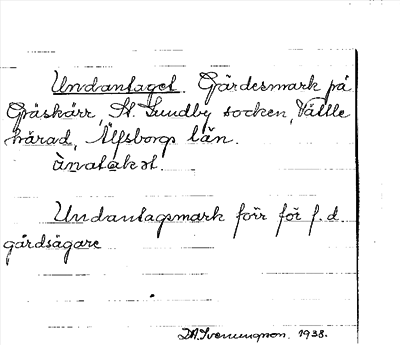 Undantaget. Gärdesmark på
Gräskärr, St. Lundby socken, Vättle
härad, Älfsborgs län.
Undantagsmark förr för f. d.
gårdsägare
1938.